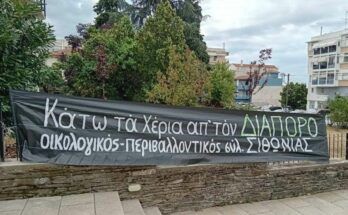 Κάτω τὰ Χέρια απ' τὸν ΔΙΑΠΟΡΟ
οικολογικός-περιβαλλοντικός σύλ. ΣΙΘΩΝΙΑΣ